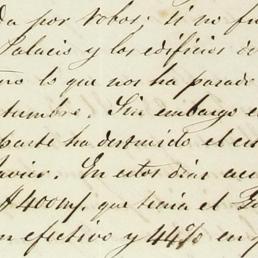 da por robos; si no fu
Palacio y los edificios de
no lo que nos ha parado
tumbre. Sin embargo e
parte ha destruido el en
avier. En estos dias ac
$400 m/. que tenia el
n efectivo y 44% en